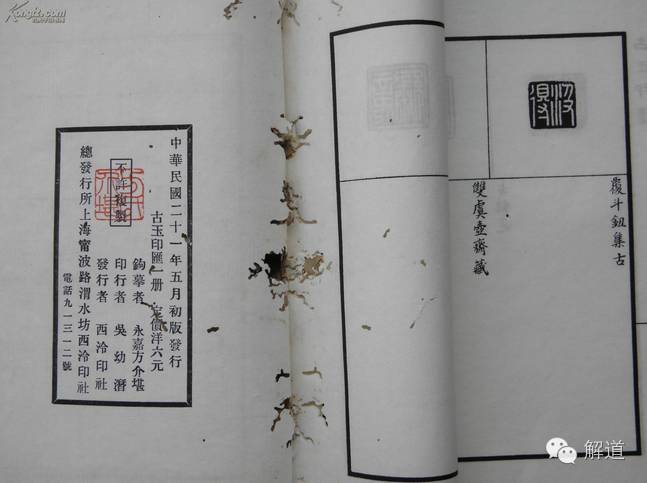 覆斗鈕集古
雙虞壺齋藏
中華民國二十一年五月初版發行
古玉印匯一册 定價洋六元
不許複製
鉤摹者 永嘉方介堪
印行者 吳幼潛
發行者 西泠印社
總發行所上海甯波路渭水坊西泠印社
電話九一三一二號
解道